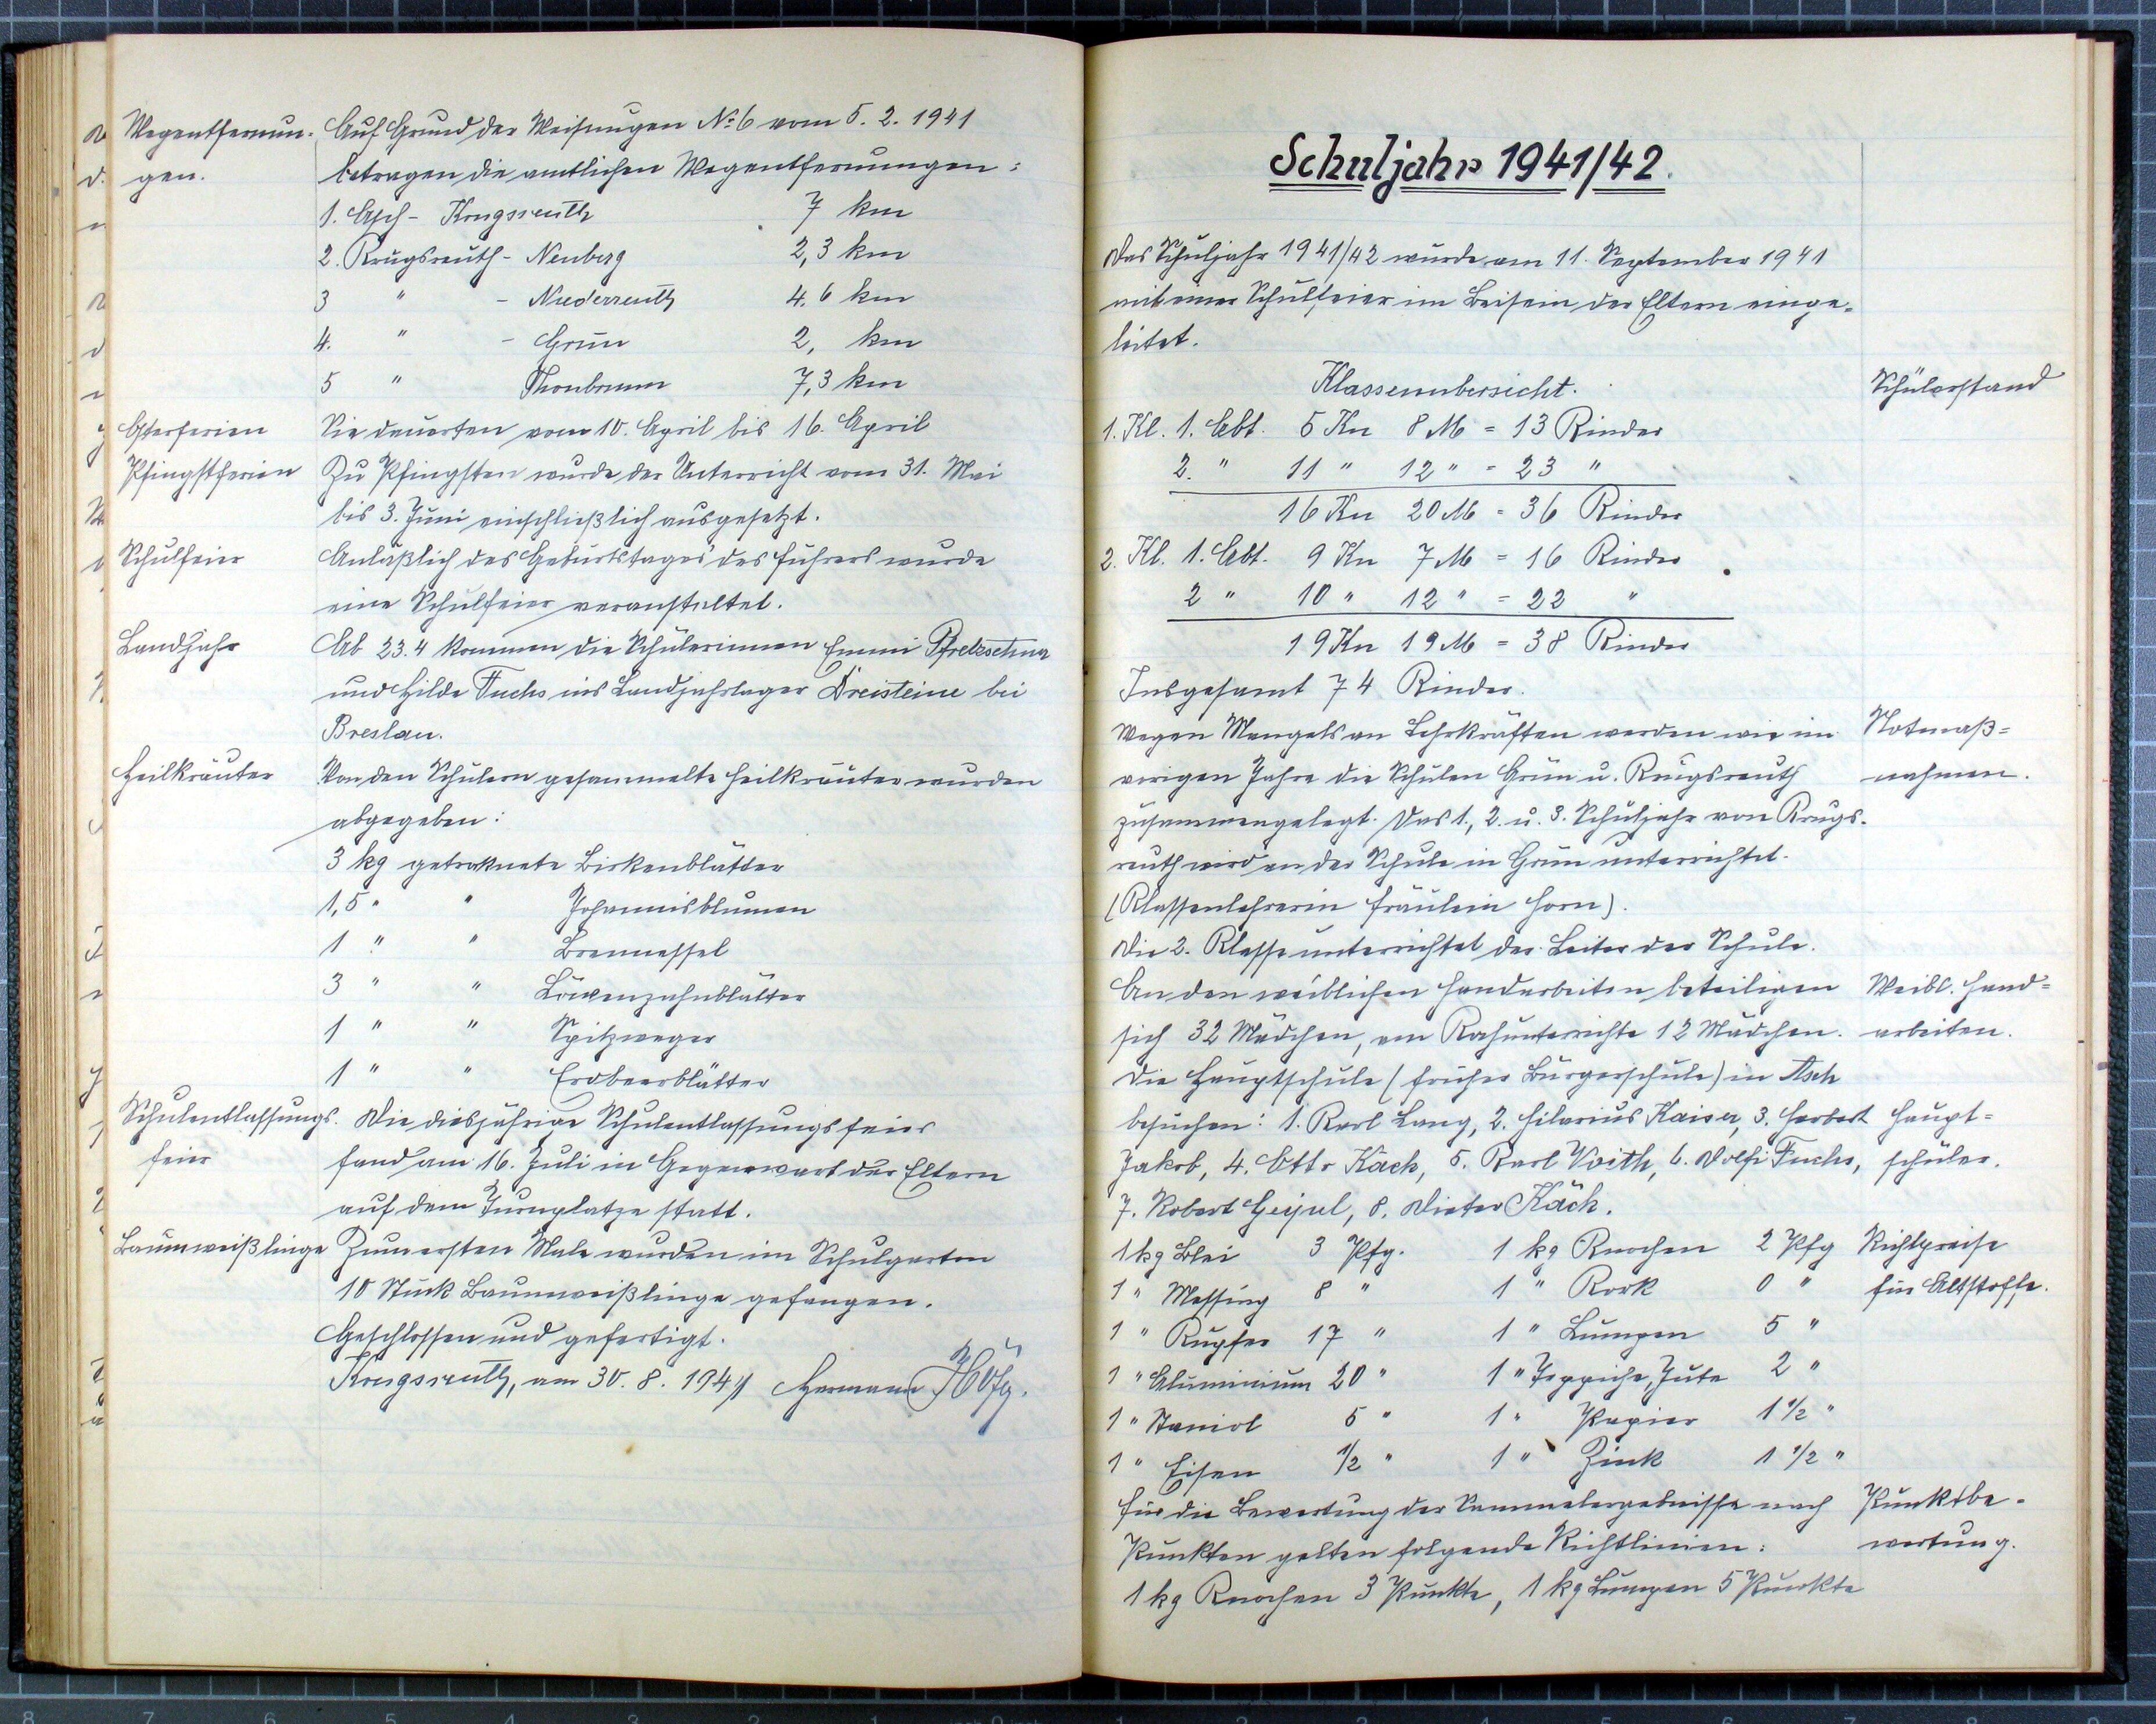 Wegentfernun-
gen.
Auf Grund der Weisungen № 6 vom 5. 2. 1941
betragen die amtlichen Wegentfernungen:
1. Asch - Krugsreuth 7 km
2. Krugsreuth - Neuberg 2,3 km
3 " - Niederreuth 4,6 km
4. " - Grün 2, km
5 " Thonbrunn 7,3 km
Osterferien
Sie dauerten vom 10. April bis 16. April
Pfingstferien
Zu Pfingsten wurde der Unterricht vom 31. Mai
bis 3. Juni einschließlich ausgesetzt.
Schulfeier
Anläßlich des Geburtstages des Führers wurde
eine Schulfeier veranstaltet.
Landjahr
Ab 23.4 kommen die Schülerinnen Emmi Pfretzschner
und Hilde Fuchs ins Landjahrlager Dreisteine bei
Breslau.
Heilkräuter
Von den Schülern gesammelte Heilkräuter wurden
abgegeben:
3 kg getroknete Birkenblätter
1,5 " " Johannisblumen
1 " " Brennessel
3 " " Löwenzahnblätter
1 " " Spitzweger
1 " " Erdbeerblätter
Schulentlassungs-
feier
Die diesjährige Schulentlassungsfeier
fand am 16. Juli in Gegenwart der Eltern
auf dem Turnplatze statt.
Baumweißlinge
Zum ersten Male wurden im Schulgarten
10 Stück Baumweißlinge gefangen.
Geschlossen und gefertigt.
Krugsreuth, am 30. 8. 1941 Hermann Höfg.
Schuljahr 1941/42.
Das Schuljahr 1941/42 wurde am 11. September 1941
mit einer Schulfeier im Beisein der Eltern einge-
leitet.
Klassenübersicht.
Schülerstand
1. Kl. 1. Abt. 5 Kn 8 M = 13 Kinder
2. " 11 " 12 " = 23 "
16 Kn 20 M = 36 Kinder
2. Kl. 1. Abt. 9 Kn 7 M = 16 Kinder
2 " 10 " 12 " = 22 "
19 Kn 19 M = 38 Kinder
Insgesamt 74 Kinder.
Wegen Mangels an Lehrkräften werden wie im
vorigen Jahre die Schulen Grün u. Krugsreuth
zusammengelegt. Das 1., 2. u. 3. Schuljahr von Krugs-
reuth wird an der Schule in Grün unterrichtet.
(Klassenlehrerin Fräulein Horn).
Notmaß=
nahmen.
Die 2. Klasse unterrichtet der Leiter der Schule.
An den weiblichen Handarbeiten beteiligen
sich 32 Mädchen, am Kochunterrichte 12 Mädchen.
Weibl. Hand=
arbeiten.
Die Hauptschule (früher Bürgerschule) in Asch
besuchen: 1. Karl Lang, 2. Hilarius Kaiser, 3. Herbert
Jakob, 4. Otto Käck, 5. Karl Voith, 6. Dolfi Fuchs,
7. Robert Geipel, 8. Dieter Käck.
Haupt=
schüler.
1 kg Blei 3 Pfg. 1 kg Knochen 2 Pfg
1 " Messing 8 " 1 " Kork 0 "
1 " Kupfer 17 " 1 " Lumpen 5 "
1 " Aluminium 20 " 1 " Teppiche, Jute 2 "
1 " Staniol 5 " 1 " Papier 1 1/2 "
1 " Eisen 1/2 " 1 " Zink 1 1/2 "
Richtpreise
für Altstoffe.
Für die Bewertung der Sammelergebnisse nach
Punkten gelten folgende Richtlinien:
1 kg Knochen 3 Punkte, 1 kg Lumpen 5 Punkte
Punktbe-
wertung.